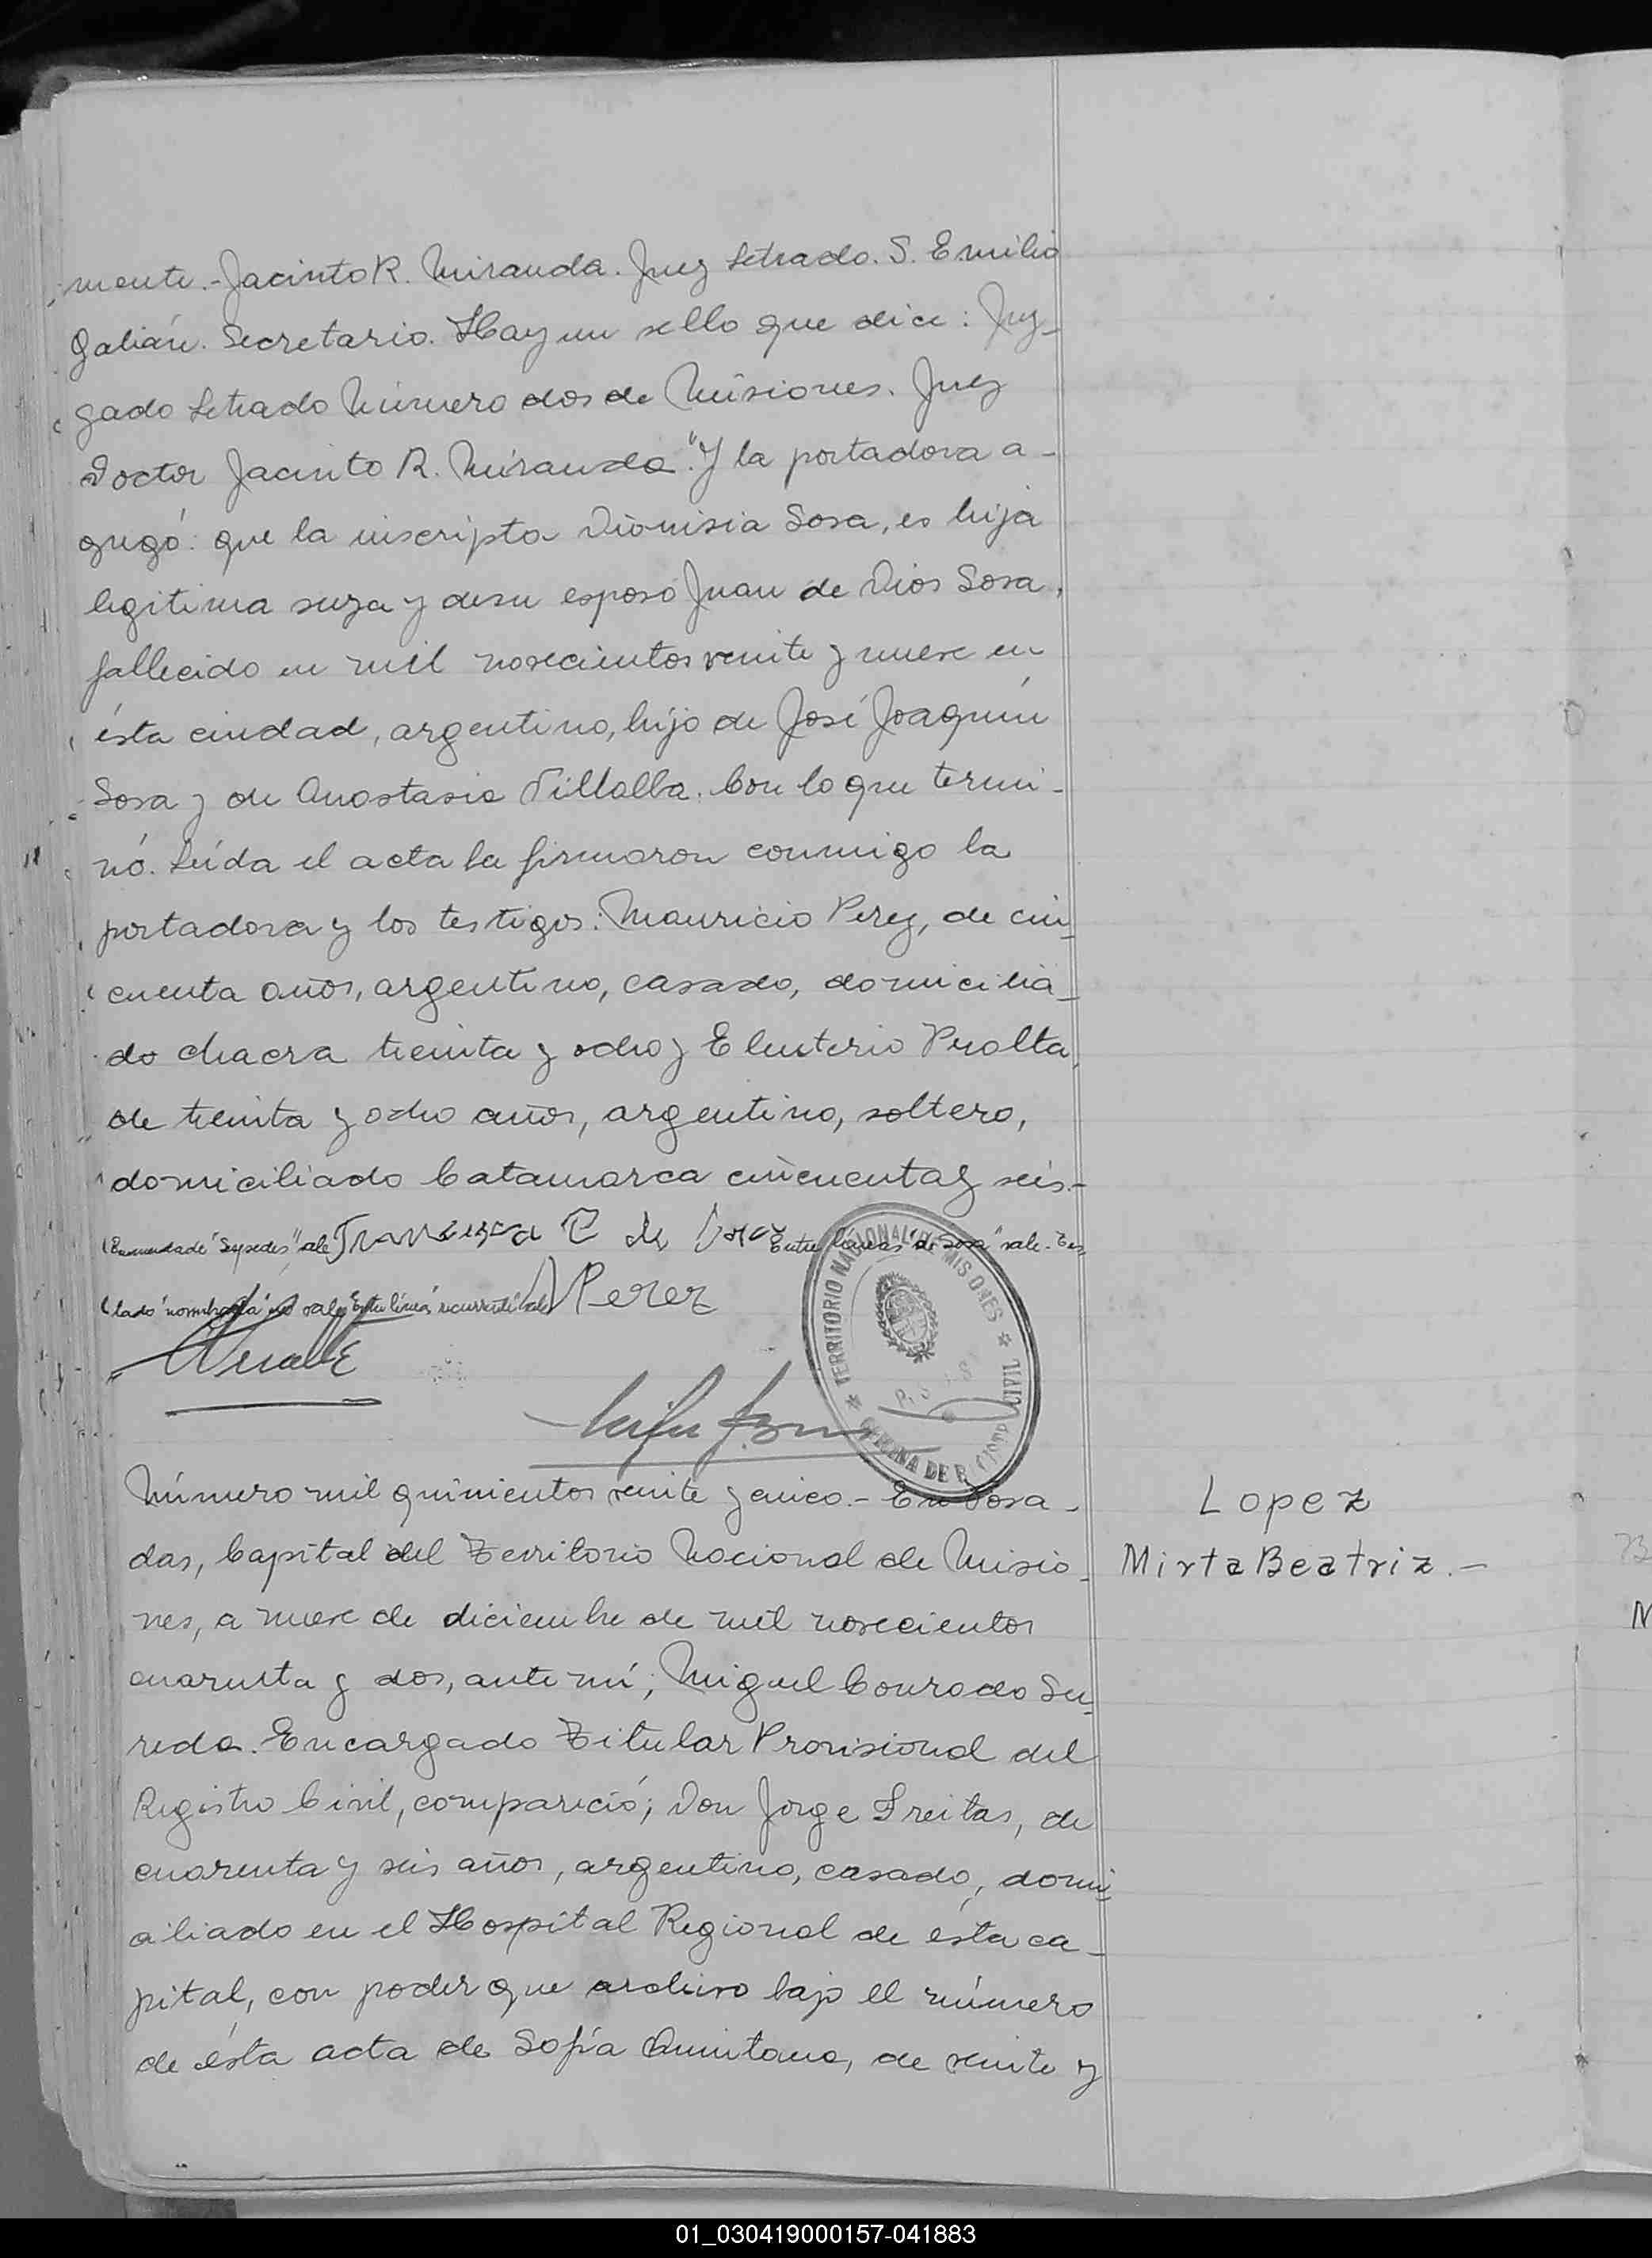 mente.- Jacinto R. Miranda. Juez Letrado. S. Emilio
Galián. Secretario. Hay un sello que dice: Juz-
gado Letrado Número dos de Misiones. Juez
Doctor Jacinto R. Miranda." Y la portadora a-
gregó: que la inscripta Dionisia Sosa, es hija
legitima suya y de su esposo Juan de Dios Sosa,
fallecido en mil novecientos veinte y nueve en
ésta ciudad, argentino, hijo de José Joaquín
Sosa y de Anastasia Villalba. Con lo que termi-
nó. Leída el acta la firmaron conmigo la
portadora y los testigos: Mauricio Perez, de cin-
cuenta años, argentino, casado, domicilia-
do chacra treinta y ocho y Eleuterio Peralta,
de treinta y ocho años, argentino, soltero,
domiciliado Catamarca cincuenta y seis.-
Enmendado vale Francisca de Entre lineas "de Sosa" vale. Tes
tado no vale Entre lineas vale MPerez
TERRITORIO NACIONAL DE MISIONES
OFICINA DE CIVIL
Número mil quinientos veinte y cinco.- En Posa-
das, Capital del Territorio Nacional de Misio-
nes, a nueve de diciembre de mil novecientos
cuarenta y dos, ante mí; Miguel Conrado Su-
reda. Encargado Titular Provisional del
Registro Civil, compareció; Don Jorge Freitas, de
cuarenta y seis años, argentino, casado, domi-
ciliado en el Hospital Regional de ésta ca-
pital, con poder que archivo bajo el número
de ésta acta de Sofía Quintana, de veinte y
Lopez
Mirta Beatriz.-
01_030419000157-041883